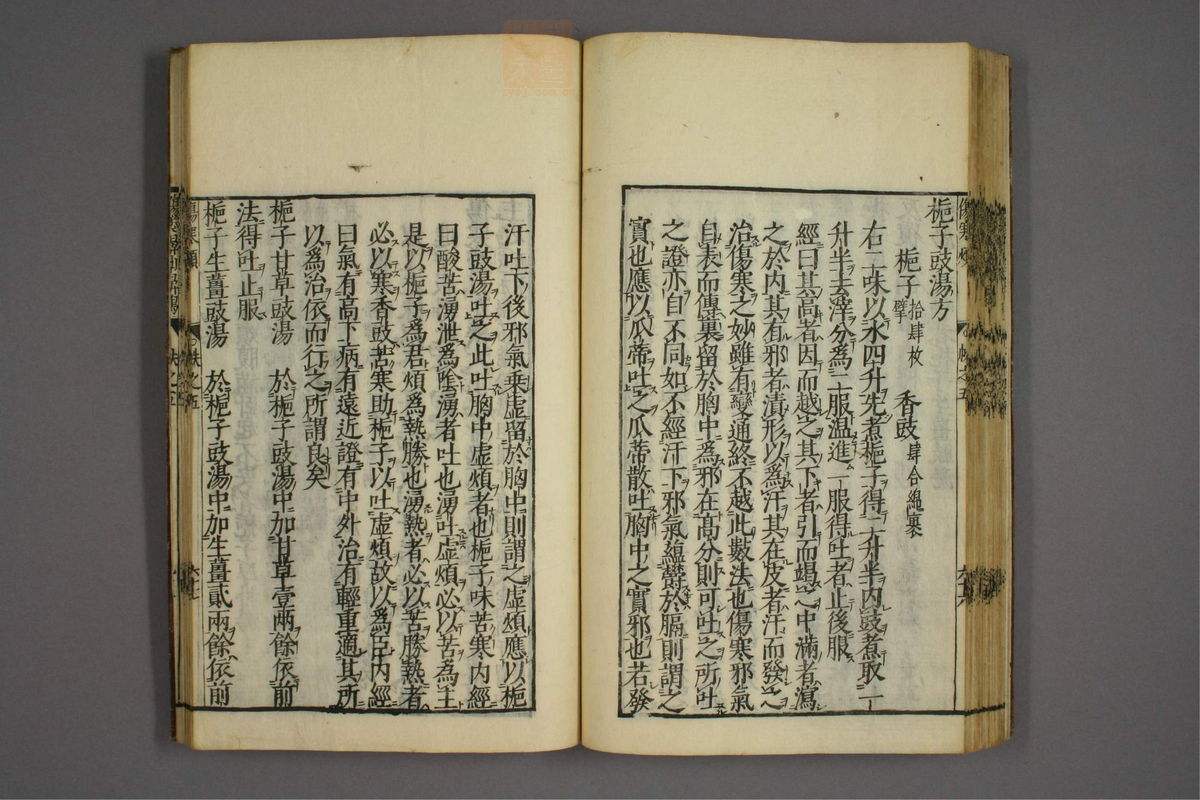 梔子豉湯方
梔子 拾肆枚擘 香豉 肆合綿裹
右二味以水四升先煮梔子得二升半內豉煮取一
升半去滓分為二服溫進一服得吐者止後服
經曰其高者因而越之其下者引而竭之中滿者瀉
之於內其有邪者漬形以為汗其在皮者汗而發之
治傷寒之妙雖有變通終不越此數法也傷寒邪氣
自表而傳裏留於胸中為邪在高分則可吐之所吐
之證亦自不同如不經汗下邪氣蘊欝於膈則謂之
實也應以瓜蒂吐之瓜蒂散吐胸中之實邪也若發
汗吐下後邪氣乘虛留於胸中則謂之虛煩應以梔
子豉湯吐之此吐胸中虛煩者也梔子味苦寒內經
曰酸苦湧泄為陰湧者吐也湧吐虛煩必以苦為主
是以梔子為君煩為熱勝也湧熱者必以苦勝熱者
必以寒香豉苦寒助梔子以吐虛煩故以為臣內經
曰氣有高下病有遠近證有中外治有輕重適其所
以為治依而行之所謂良矣
梔子甘草豉湯 於梔子豉湯中加甘草壹兩餘依前
法得吐止服
梔子生薑豉湯 於梔子豉湯中加生薑貳兩餘依前